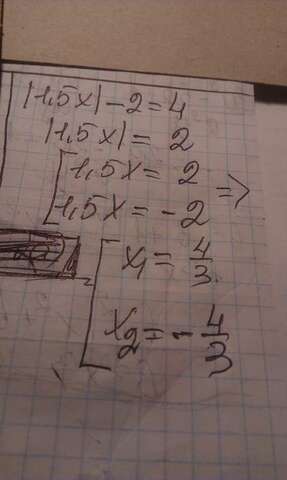 |1,5x| - 2 = 4
|1,5x| = 2
[1,5x = 2
[1,5x = -2 =>
[x₁ = 4/3
[x₂ = -4/3